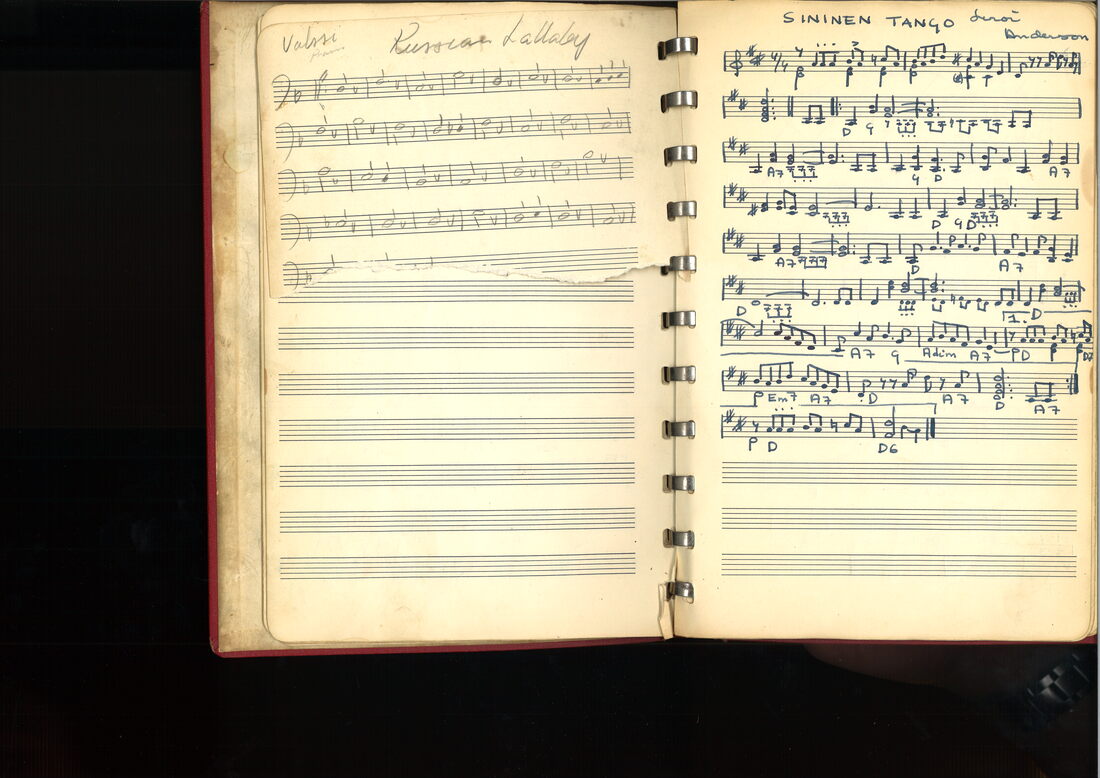 Valssi
Russian Lullaby
SININEN TANGO Leroi
Anderson
4/4
D G
A7 G D A7
D G D
A7 D A7
D 1. D
A7 G Adim A7 D D7
Em7 A7 D A7 D A7
D D6